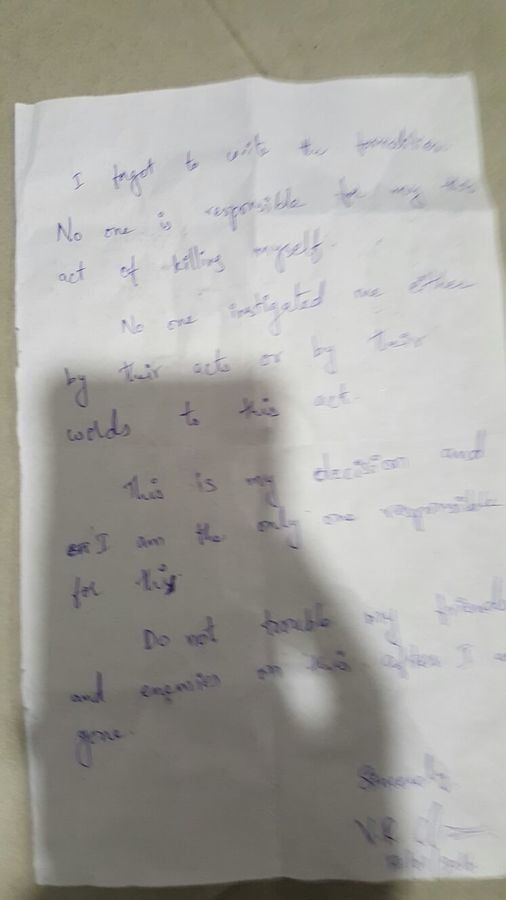 I forgot to write the formalities
No one is responsible for my this
act of killing myself.
No one instigated me either
by their acts or by their
words to this act.
This is my decision and
I am the only one responsible
for this
Do not trouble my friends
and enemies on this after I a
gone.
Sincerely
V.R.